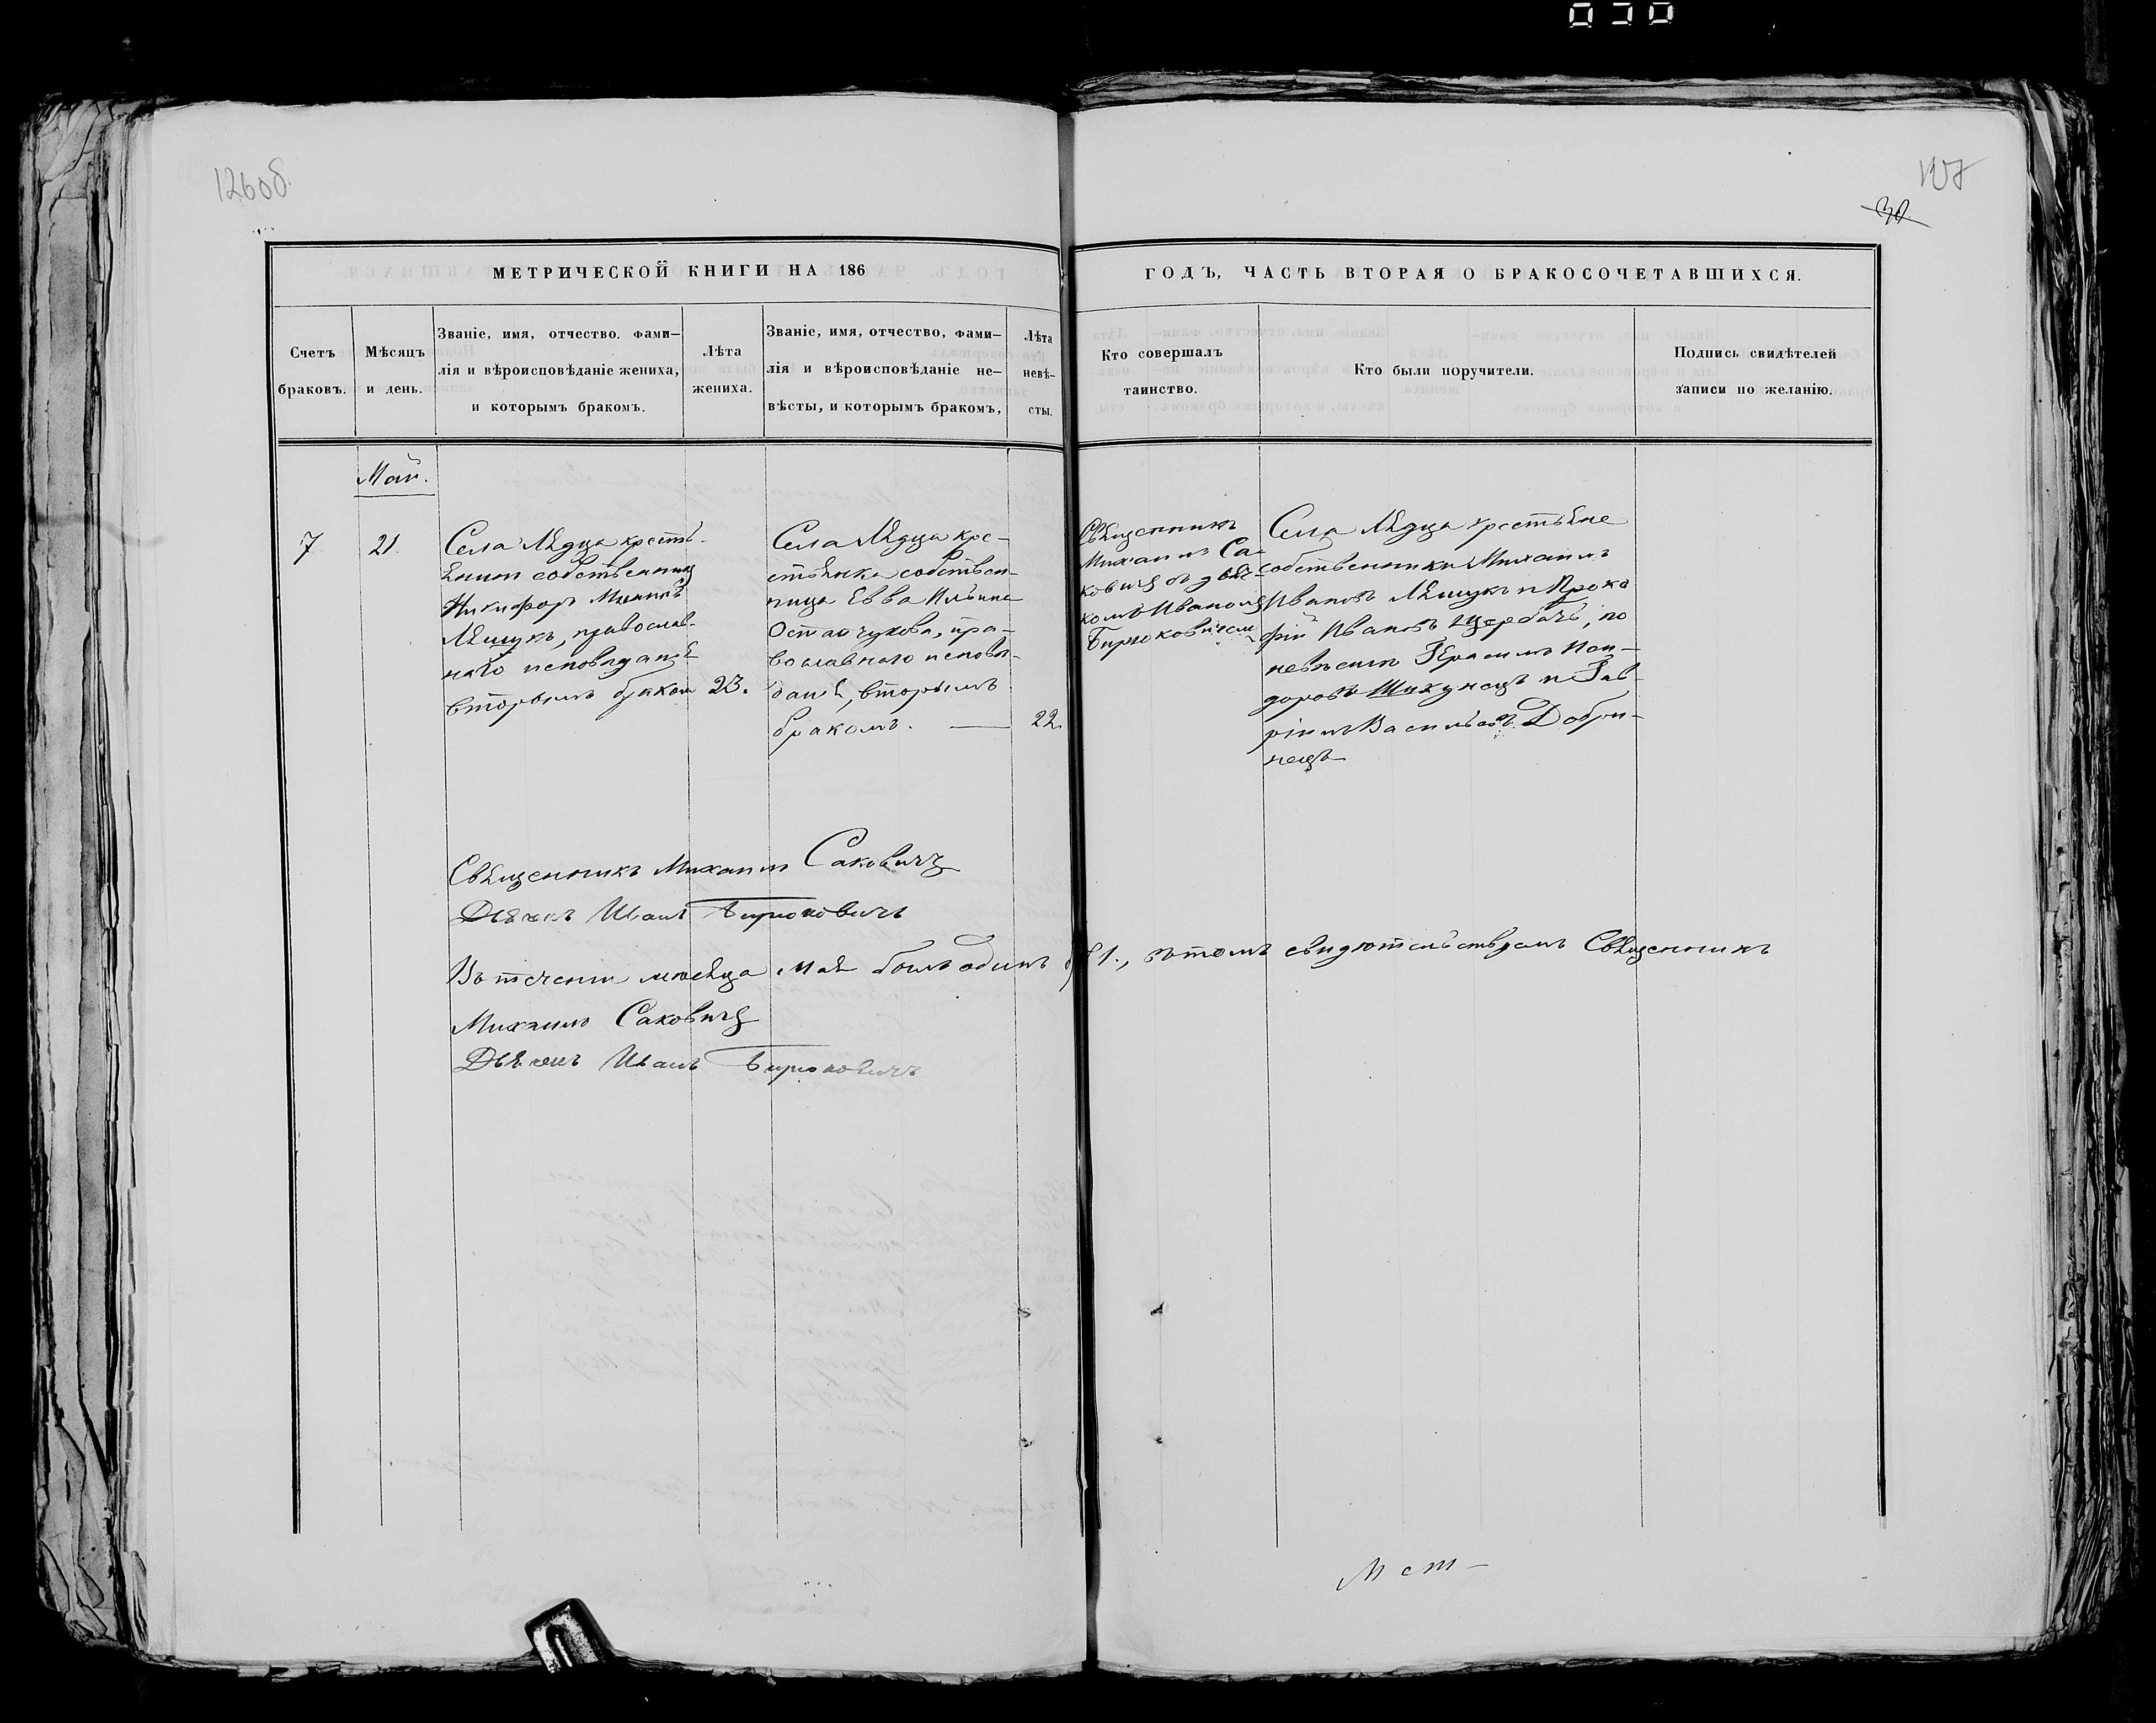 126об.
127
30.
МЕТРИЧЕСКОЙ КНИГИ НА 186
ГОДЪ, ЧАСТЬ ВТОРАЯ О БРАКОСОЧЕТАВШИХСЯ.
Счетъ
браковъ.
Мѣсяцъ
и день.
Званіе, имя, отчество. фами-
лія и вѣроисповѣданіе жениха,
и которымъ бракомъ.
Лѣта
жениха.
Званіе, имя, отчество, фами-
лія и вѣроисповѣданіе не-
вѣсты, и которымъ бракомъ,
Лѣта
невѣ-
сты.
Кто совершалъ
таинство.
Кто были поручители.
Подпись свидѣтелей
записи по желанію.
Май.
7
21
Села Лядца крестья-
янинъ собственникъ
Никифоръ
Лящукъ, православ-
наго исповѣданія
вторымъ бракомъ
23.
Села Лядца кре-
стьянка собствен-
ница Евва Ильина
Остапчукова, пра-
вославнаго исповѣ-
данія, вторымъ
бракомъ.
22.
Священникъ
Михаилъ Са-
ковичъ съ дьяч-
комъ Иваномъ
Бирюковичемъ
Села Лядца крестьяне
собственники Михаилъ
Ивановъ Лящукъ и Проко
фій Ивановъ Щербачъ, по
невѣстѣ Герасимъ Иси-
доровъ Шихунецъ и Гав-
ріилъ Васильевъ Добри-
нецъ
Священникъ Михаилъ Саковичъ
Дьячекъ Иванъ Бирюковичъ
Въ теченіи мѣсяца мая былъ одинъ 1., въ томъ свидѣтельствуемъ Священникъ
Михаилъ Саковичъ
Дьячекъ Иванъ Бирюковичъ
Мет-